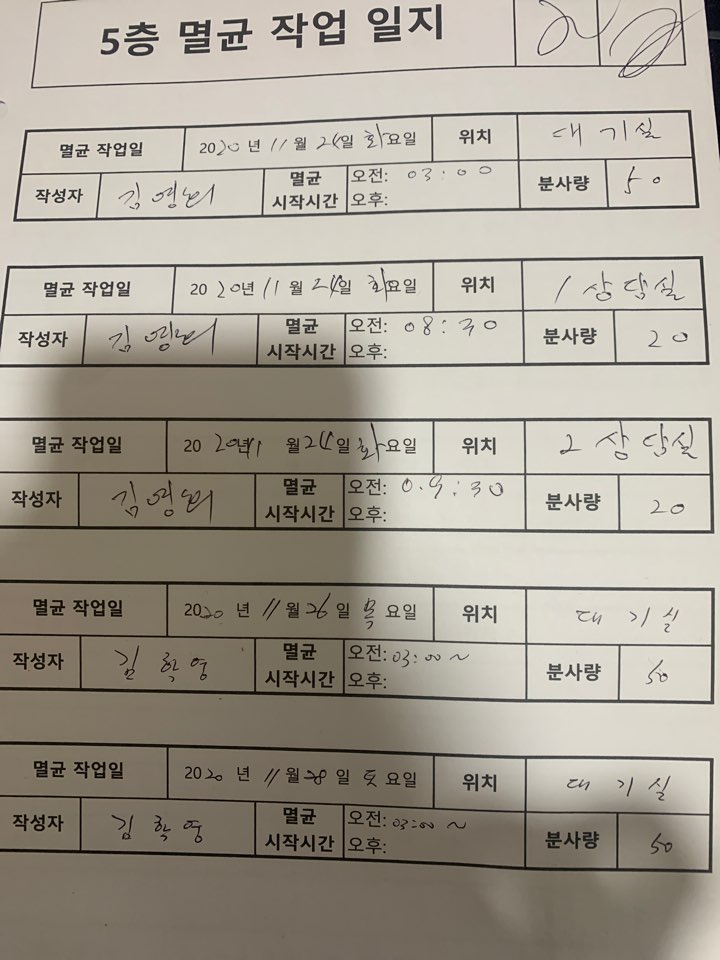 5층 멸균 작업 일지
멸균 작업일 2020년 11월 24일 화요일 위치 대기실
작성자 김영 멸균 시작시간 오전: 03:00 오후: 분사량 50
멸균 작업일 2020년 11월 24일 화요일 위치 1 상담실
작성자 김영 멸균 시작시간 오전: 08:30 오후: 분사량 20
멸균 작업일 2020년 11월 24일 화요일 위치 2 상담실
작성자 김영 멸균 시작시간 오전: 09:30 오후: 분사량 20
멸균 작업일 2020년 11월 26일 목요일 위치 대기실
작성자 김학영 멸균 시작시간 오전: 03:00~ 오후: 분사량 50
멸균 작업일 2020년 11월 28일 토요일 위치 대기실
작성자 김학영 멸균 시작시간 오전: 03:00~ 오후: 분사량 50